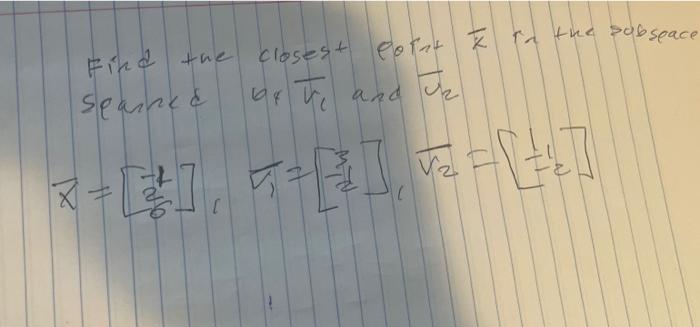 Find the closest point x̄ in the subspace
spanned by v̄₁ and v̄₂
x̄ = [ 2 6 ], v̄₁ = [ 3 2 ], v̄₂ = [ 1 -2 ]